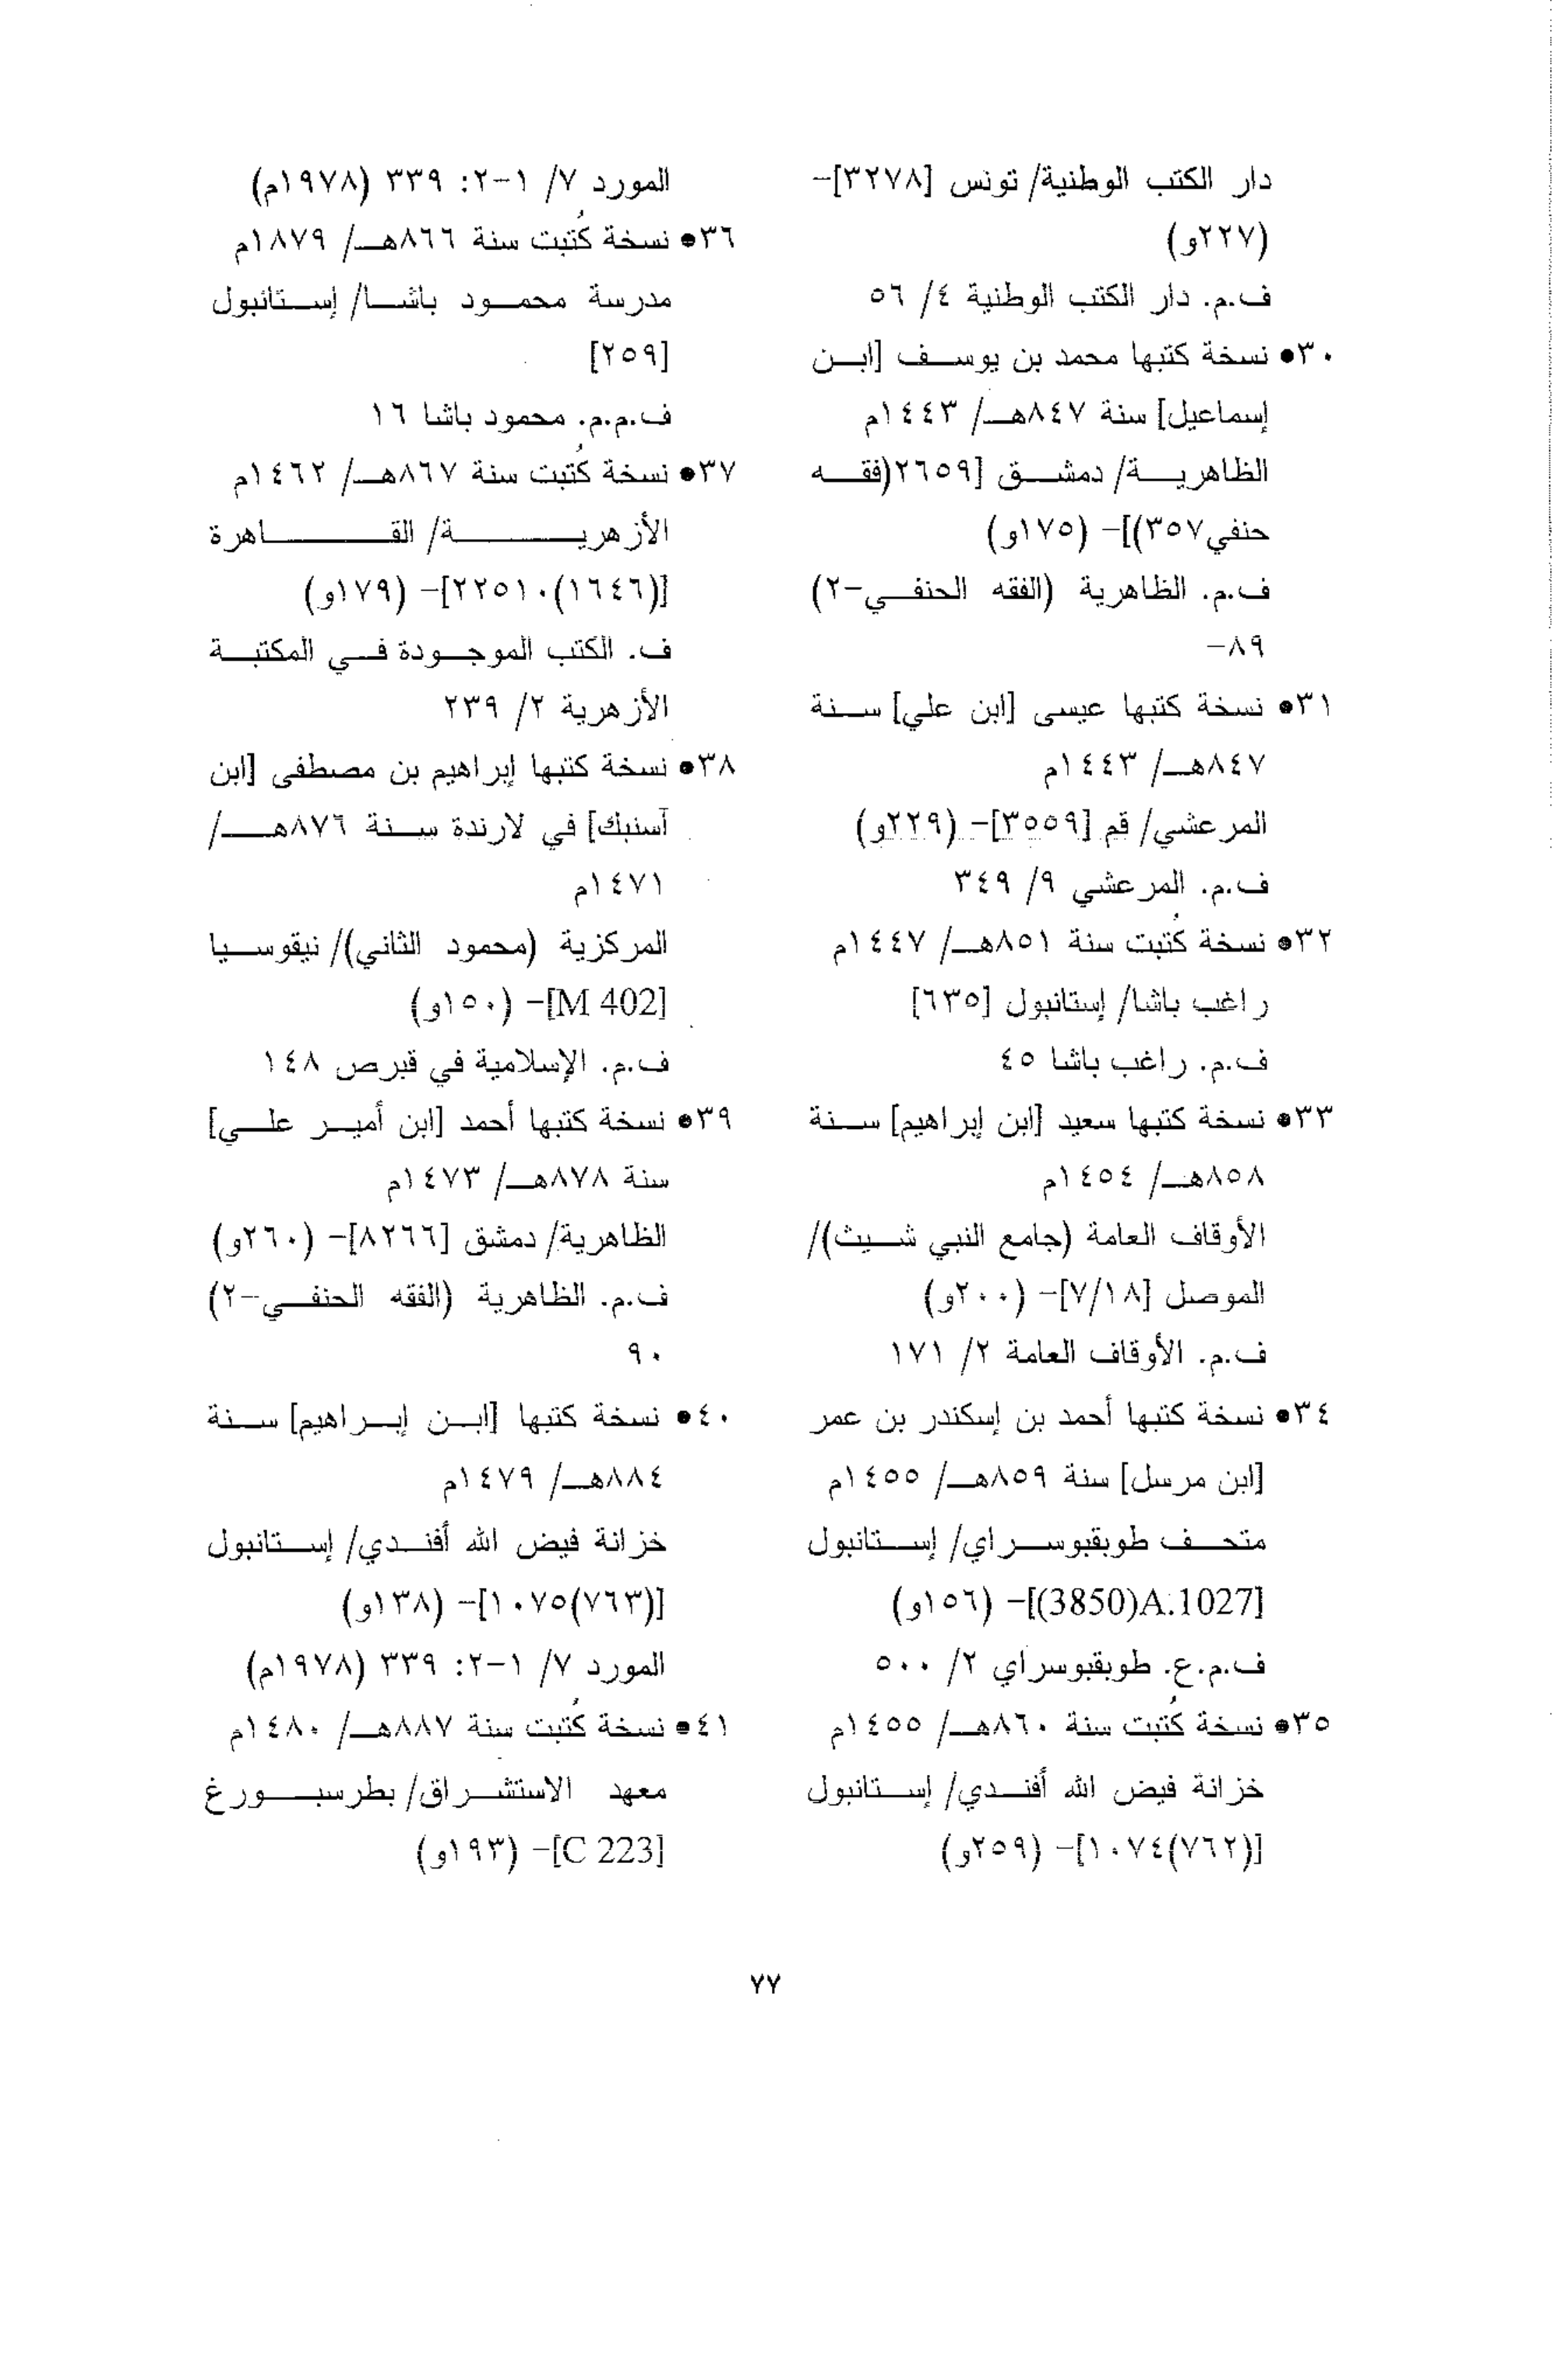 دار الكتب الوطنية/ تونس [٣٢٧٨]-
(٢٢٧و)
ف.م. دار الكتب الوطنية ٤/ ٥٦
٣٠• نسخة كتبها محمد بن يوسف [ابن
إسماعيل] سنة ٨٤٧هـ/ ١٤٤٣م
الظاهرية/ دمشق [٢٦٥٩(فقه
حنفي٣٥٧)]- (١٧٥و)
ف.م. الظاهرية (الفقه الحنفي-٢)
٨٩-
٣١• نسخة كتبها عيسى [ابن علي] سنة
٨٤٧هـ/ ١٤٤٣م
المرعشي/ قم [٣٥٥٩]- (٢٢٩و)
ف.م. المرعشي ٩/ ٣٤٩
٣٢• نسخة كُتبت سنة ٨٥١هـ/ ١٤٤٧م
راغب باشا/ إستانبول [٦٣٥]
ف.م. راغب باشا ٤٥
٣٣• نسخة كتبها سعيد [ابن إبراهيم] سنة
٨٥٨هـ/ ١٤٥٤م
الأوقاف العامة (جامع النبي شيث)/
الموصل [٧/١٨]- (٢٠٠و)
ف.م. الأوقاف العامة ٢/ ١٧١
٣٤• نسخة كتبها أحمد بن إسكندر بن عمر
[ابن مرسل] سنة ٨٥٩هـ/ ١٤٥٥م
متحف طوبقبوسراي/ إستانبول
[A.1027(3850)]- (١٥٦و)
ف.م.ع. طوبقبوسراي ٢/ ٥٠٠
٣٥• نسخة كُتبت سنة ٨٦٠هـ/ ١٤٥٥م
خزانة فيض الله أفندي/ إستانبول
[(٧٦٢)١٠٧٤]- (٢٥٩و)
المورد ٧/ ١-٢: ٣٣٩ (١٩٧٨م)
٣٦• نسخة كُتبت سنة ٨٦٦هـ/ ١٨٧٩م
مدرسة محمود باشا/ إستانبول
[٢٥٩]
ف.م.م. محمود باشا ١٦
٣٧• نسخة كُتبت سنة ٨٦٧هـ/ ١٤٦٢م
الأزهرية/ القاهرة
[(١٦٤٦)٢٢٥١٠]- (١٧٩و)
ف. الكتب الموجودة في المكتبة
الأزهرية ٢/ ٢٣٩
٣٨• نسخة كتبها إبراهيم بن مصطفى [ابن
آسنبك] في لارندة سنة ٨٧٦هـ/
١٤٧١م
المركزية (محمود الثاني)/ نيقوسيا
[M 402]- (١٥٠و)
ف.م. الإسلامية في قبرص ١٤٨
٣٩• نسخة كتبها أحمد [ابن أمير علي]
سنة ٨٧٨هـ/ ١٤٧٣م
الظاهرية/ دمشق [٨٢٦٦]- (٢٦٠و)
ف.م. الظاهرية (الفقه الحنفي-٢)
٩٠
٤٠• نسخة كتبها [ابن إبراهيم] سنة
٨٨٤هـ/ ١٤٧٩م
خزانة فيض الله أفندي/ إستانبول
[(٧٦٣)١٠٧٥]- (١٣٨و)
المورد ٧/ ١-٢: ٣٣٩ (١٩٧٨م)
٤١• نسخة كُتبت سنة ٨٨٧هـ/ ١٤٨٠م
معهد الاستشراق/ بطرسبورغ
[C 223]- (١٩٣و)
٧٧